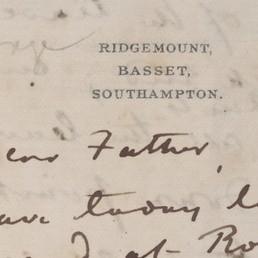 RIDGEMOUNT,
BASSET,
SOUTHAMPTON.
ear Father,
ave today
at Ro